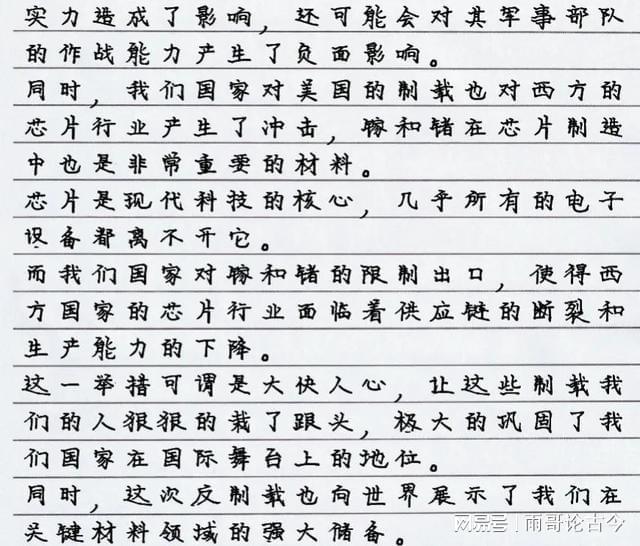 实力造成了影响，还可能会对其军事部队
的作战能力产生了负面影响。
同时，我们国家对美国的制裁也对西方的
芯片行业产生了冲击，镓和锗在芯片制造
中也是非常重要的材料。
芯片是现代科技的核心，几乎所有的电子
设备都离不开它。
而我们国家对镓和锗的限制出口，使得西
方国家的芯片行业面临着供应链的断裂和
生产能力的下降。
这一举措可谓是大快人心，让这些制裁我
们的人狠狠的栽了跟头，极大的巩固了我
们国家在国际舞台上的地位。
同时，这次反制裁也向世界展示了我们在
关键材料领域的强大储备。
搜狐号@雨哥论古今